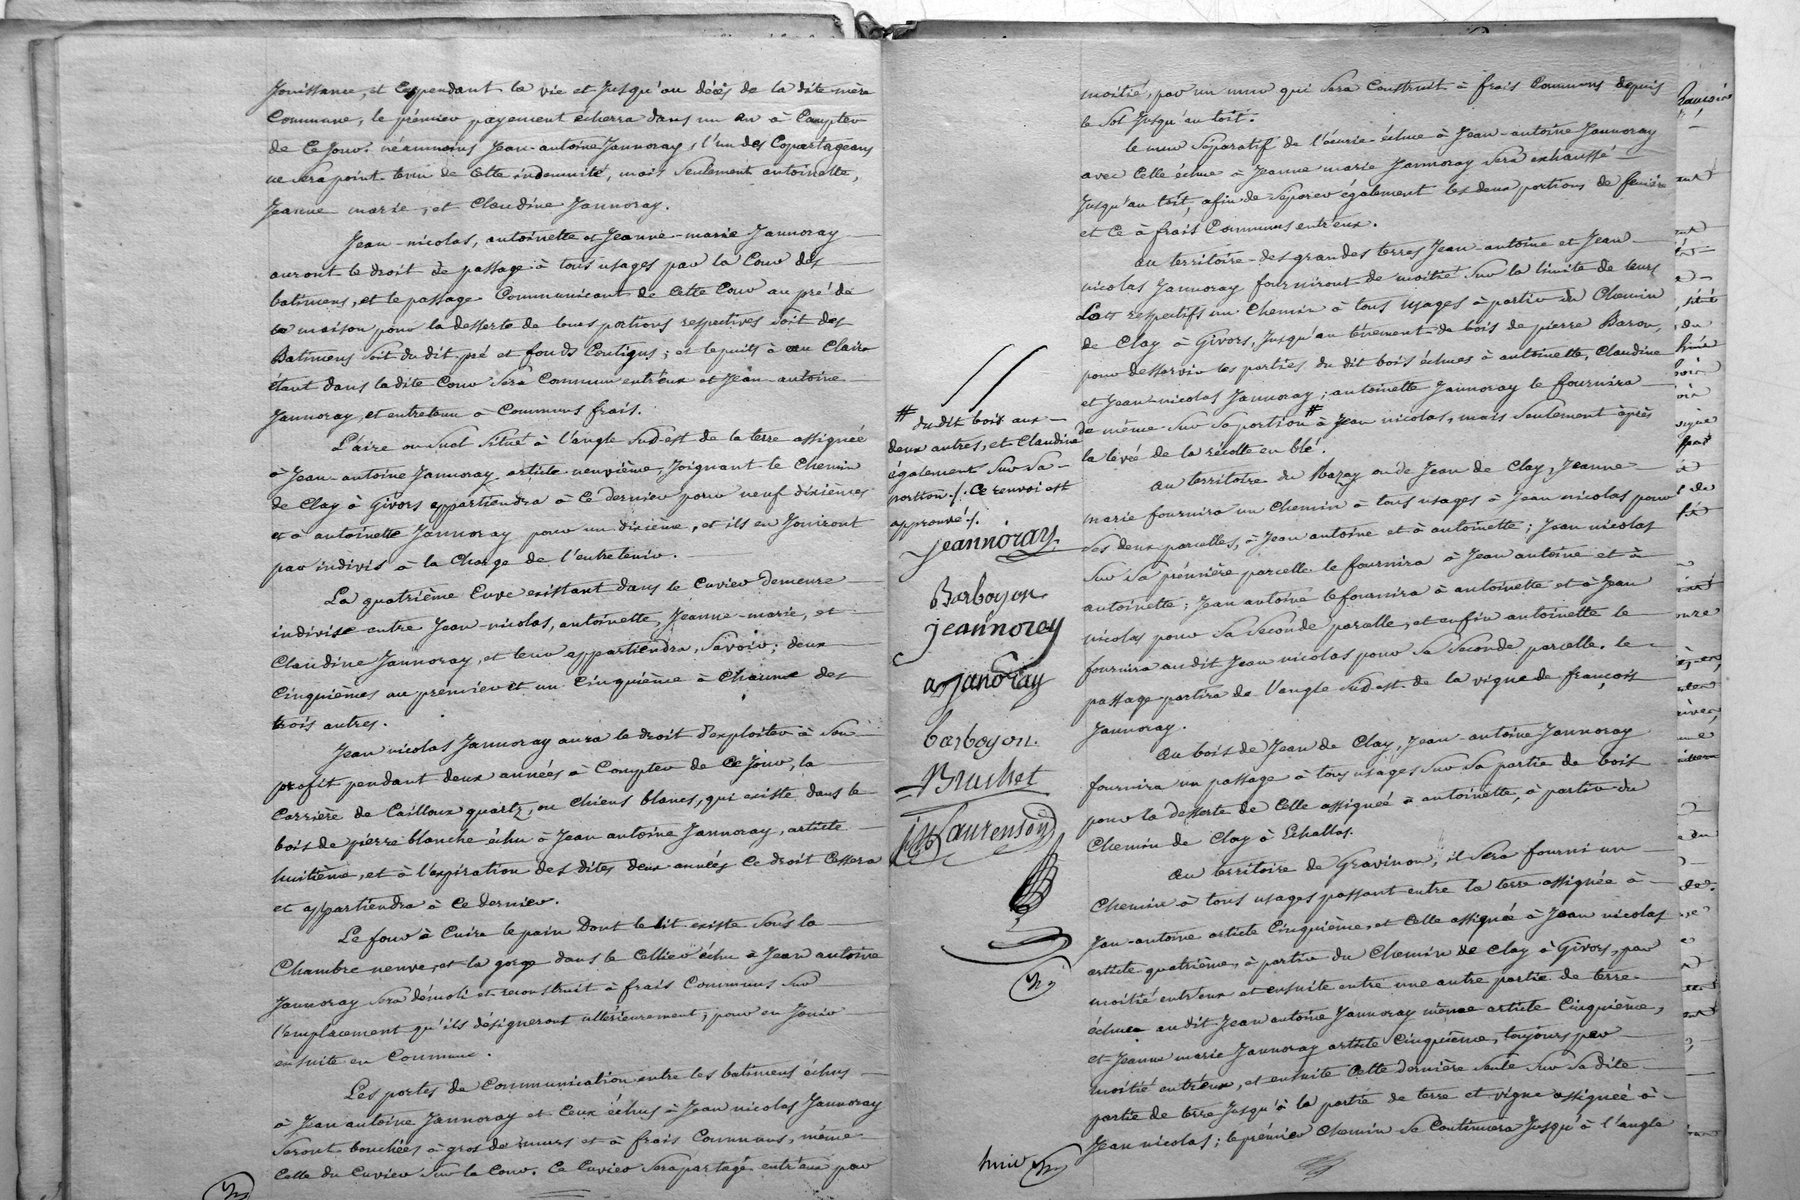 Jouissance, et Cependant la vie et Jusqu'au décès de la dite mère
Commune, le premier payement écherra dans un an à Compter
de Ce Jour. néanmoins Jean-antoine Jannoray, l'un des Copartageans
ne sera point tenu de Cette indemnité, mais Seulement antoinette,
Jeanne marie, et Claudine Jannoray.
Jean-nicolas, antoinette et Jeanne-marie Jannoray
auront le droit de passage à tous usages par la Cour des
batimens, et le passage Communicant de Cette Cour au pré de
la maison pour la desserte de leurs portions respectives soit des
Batimens soit du dit pré et fonds Contigus; et le puits à eau Claire
étant dans la dite Cour Sera Commun entr'eux et Jean-antoine
Jannoray, et entretenu à Communs frais.
L'aire ou Suel Situé à l'angle Sud-est de la terre assignée
à Jean-antoine Jannoray article neuvième, Joignant le Chemin
de Clay à Givors appartiendra à Ce dernier pour neuf dixièmes
et à antoinette Jannoray pour un dixième, et ils en Jouiront
par indivis à la Charge de l'entretenir.
La quatrième Cuve existant dans le Cuvier demeure
indivise entre Jean-nicolas, antoinette, Jeanne-marie, et
Claudine Jannoray, et leur appartiendra, Savoir; deux
Cinquièmes au premier et un Cinquième à Chacune des
trois autres.
Jean nicolas Jannoray aura le droit d'exploiter à Son
profit pendant deux années à Compter de Ce Jour, la
Carrière de Cailloux quartz, ou Chiens blancs, qui existe dans le
bois de pierre blanche échu à Jean antoine Jannoray, article
huitième, et à l'expiration des dites deux années Ce droit Cessera
et appartiendra à Ce dernier.
Le four à Cuire le pain Dont le lit existe Sous la
Chambre neuve, et la gorge dans le Cellier échu à Jean antoine
Jannoray Sera démoli et reconstruit à frais Communs Sur
l'emplacement qu'ils désigneront ultérieurement, pour en Jouir
ensuite en Commun.
Les portes de Communication entre les batimens échus
à Jean antoine Jannoray et Ceux échus à Jean nicolas Jannoray
Seront bouchées à gros de murs et à frais Communs, même
Celle du Cuvier Sur la Cour. Ce Cuvier Sera partagé entr'eux par
moitié, par un mur qui Sera Construit à frais Communs depuis
le Sol Jusqu'au toit.
le mur Séparatif de l'écurie échue à Jean-antoine Jannoray
avec Celle échue à Jeanne marie Jannoray Sera exhaussé
Jusqu'au toit, afin de Séparer également les deux portions de fenière
et Ce à frais Communs entr'eux.
au territoire des grandes terres Jean-antoine et Jean
nicolas Jannoray fourniront de moitié Sur la limite de leurs
Lots respectifs un Chemin à tous usages à partir du Chemin
de Clay à Givors, Jusqu'au tènement de bois de pierre Baron,
pour desservir les parties du dit bois échues à antoinette, Claudine
et Jean-nicolas Jannoray; antoinette Jannoray le fournira
de même Sur Sa portion # à Jean nicolas, mais Seulement après
la levée de la récolte en blé.
au territoire du Mazay ou de Jean de Clay, Jeanne
marie fournira un Chemin à tous usages à Jean nicolas pour
Ses deux parcelles, à Jean antoine et à antoinette; Jean nicolas
Sur Sa première parcelle le fournira à Jean antoine et à
antoinette; Jean antoine le fournira à antoinette et à Jean
nicolas pour Sa Seconde parcelle, et enfin antoinette le
fournira audit Jean nicolas pour Sa Seconde parcelle. le
passage partira de l'angle Sud-est de la vigne de françois
Jannoray.
Au bois de Jean de Clay, Jean-antoine Jannoray
fournira un passage à tous usages Sur Sa partie de bois
pour la desserte de Celle assignée à antoinette, à partir du
Chemin de Clay à Echallas.
Au territoire de Gravinon, il Sera fourni un
Chemin à tous usages passant entre la terre assignée à
Jean-antoine article Cinquième, et Celle assignée à Jean nicolas
article quatrième, à partir du Chemin de Clay à Givors, par
moitié entr'eux et ensuite entre une autre partie de terre
échue audit Jean antoine Jannoray même article Cinquième,
et Jeanne marie Jannoray article Cinquième, toujours par
moitié entr'eux, et ensuite Cette dernière Seule Sur Sa dite
partie de terre Jusqu'à la partie de terre et vigne assignée à
Jean nicolas; le premier Chemin Se Continuera Jusqu'à l'angle
# du dit bois aux
deux autres, et Claudine
également Sur Sa
portion ./. Ce renvoi est
approuvé ./.
Jeannoray
Barboyon
jeannoray
a janoray
barboyon
Bruchet
Laurenson